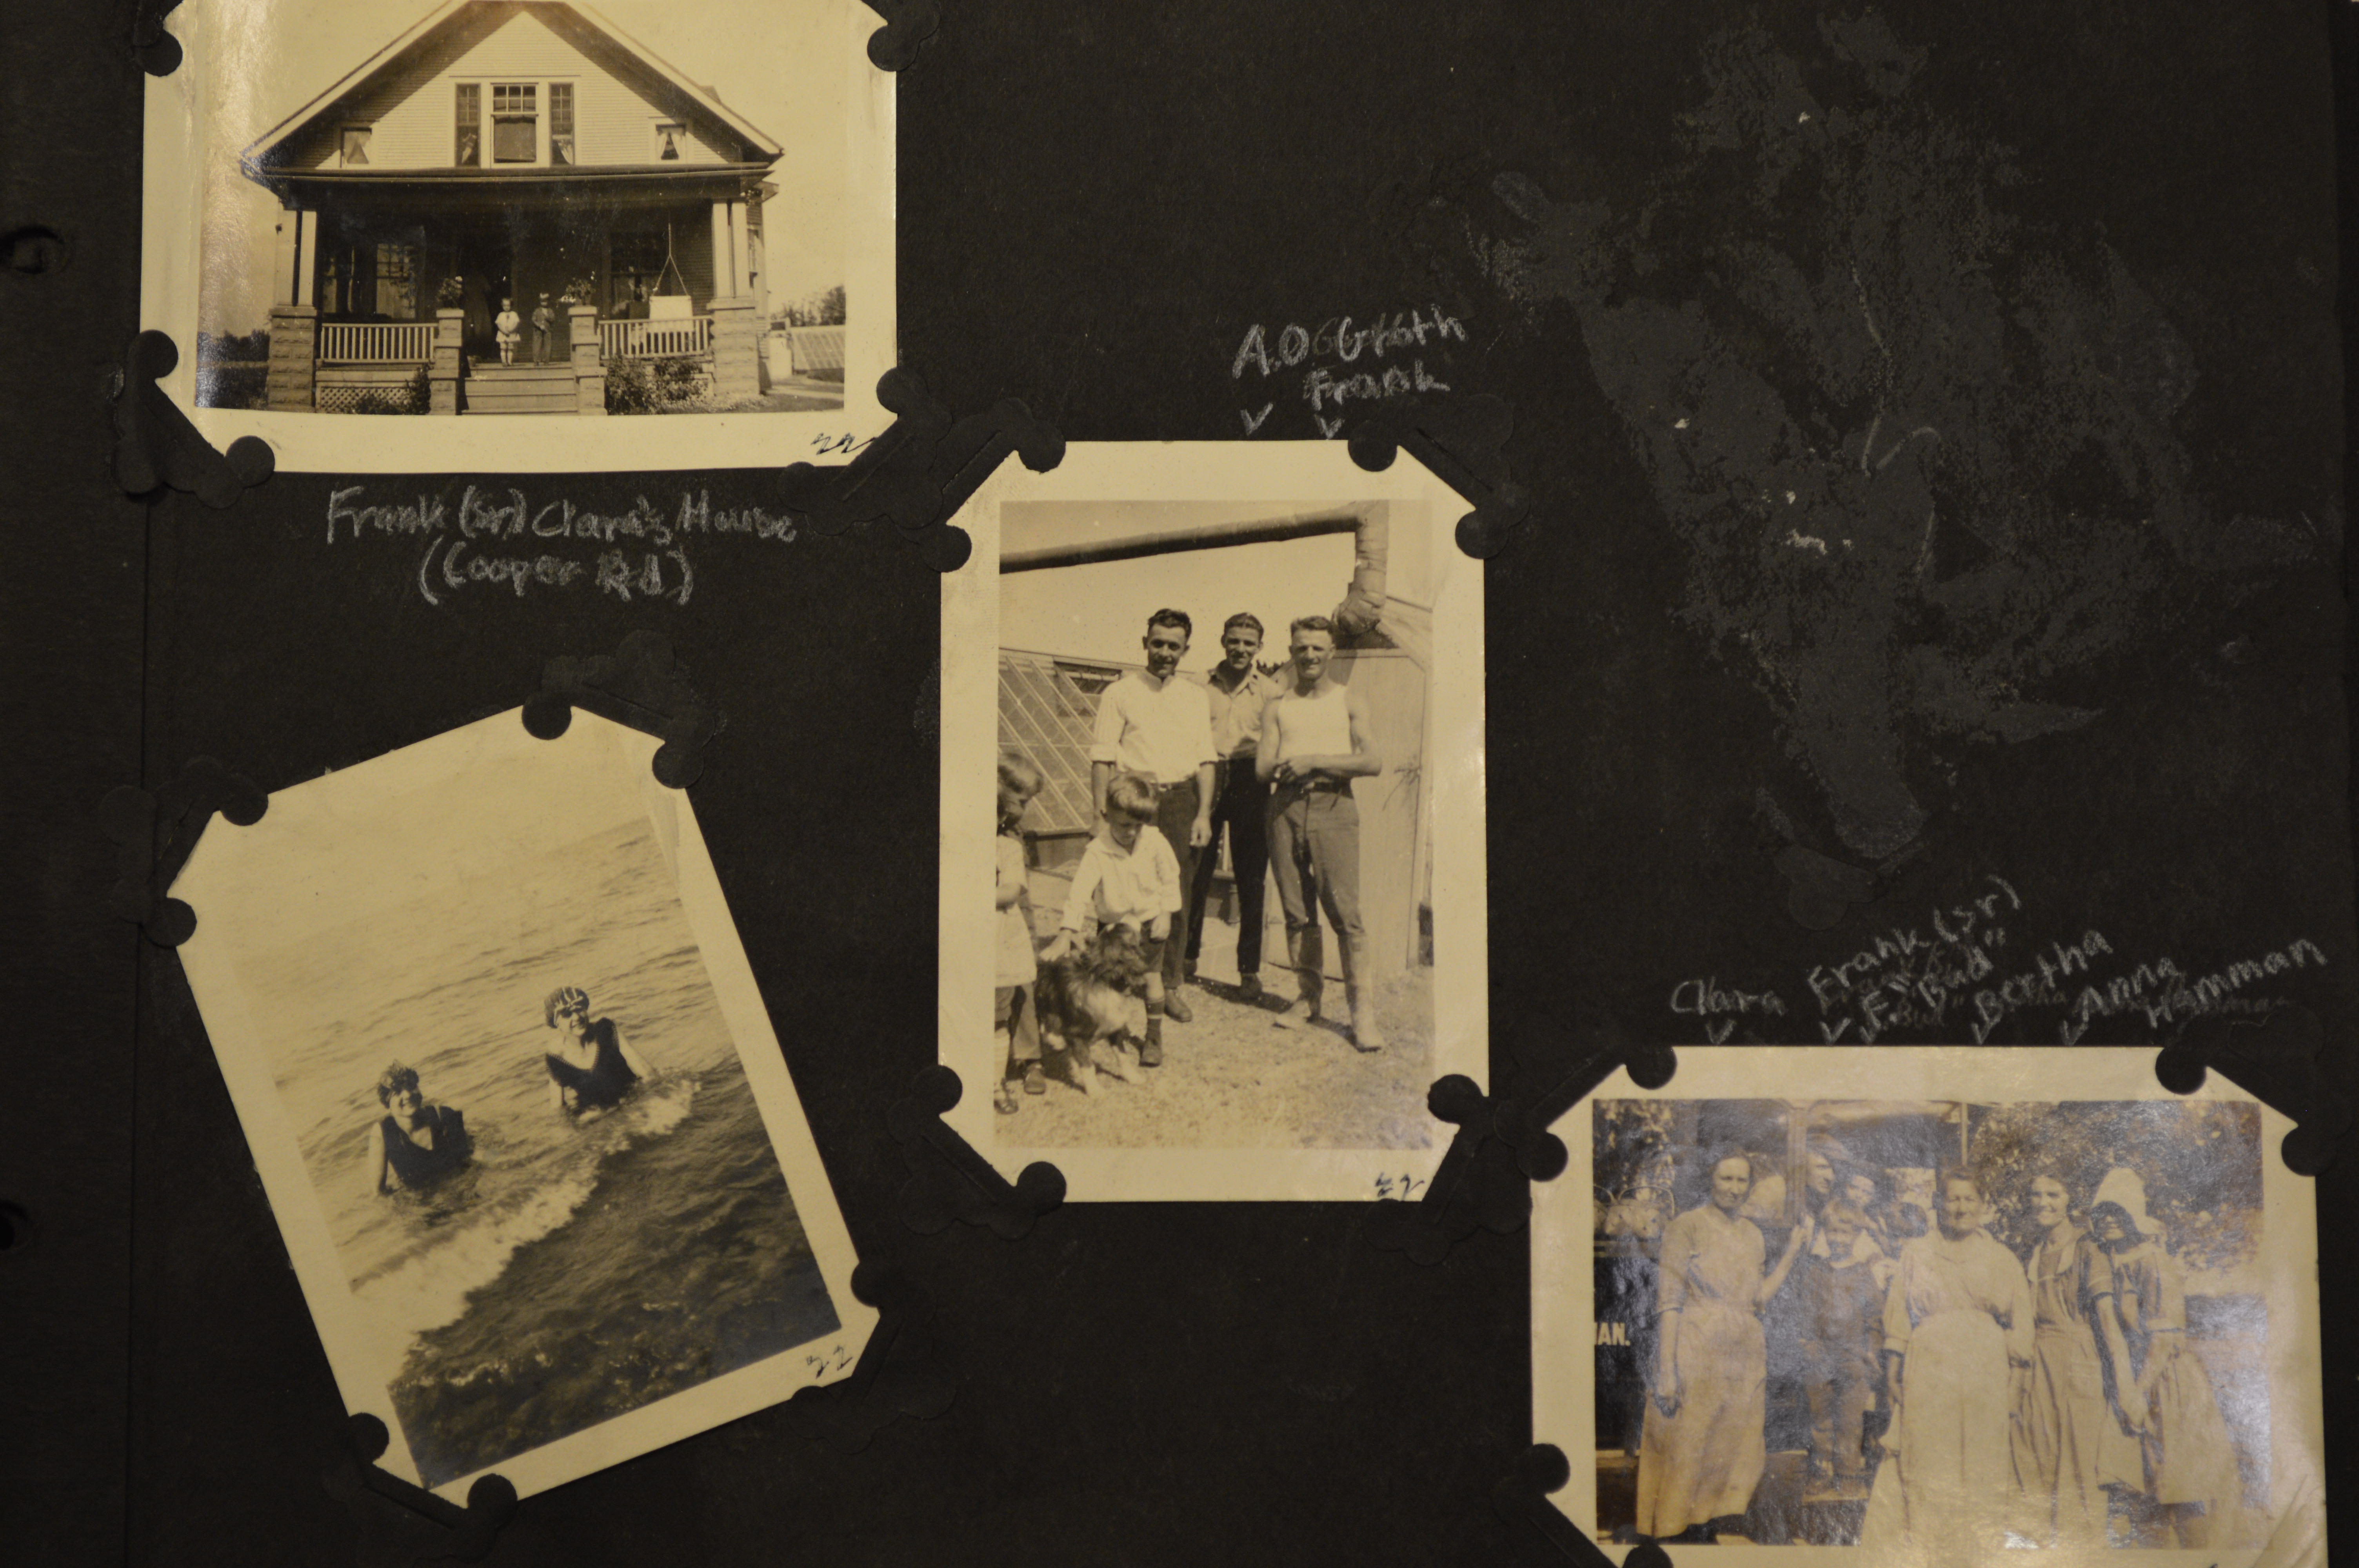 22
Frank (sr) Clara's House
(Cooper Rd)
A.O. Groth
Frank
22
22
Clara
Frank (sr)
F. "Bud"
Bertha
Anna
Hamman
IAN.